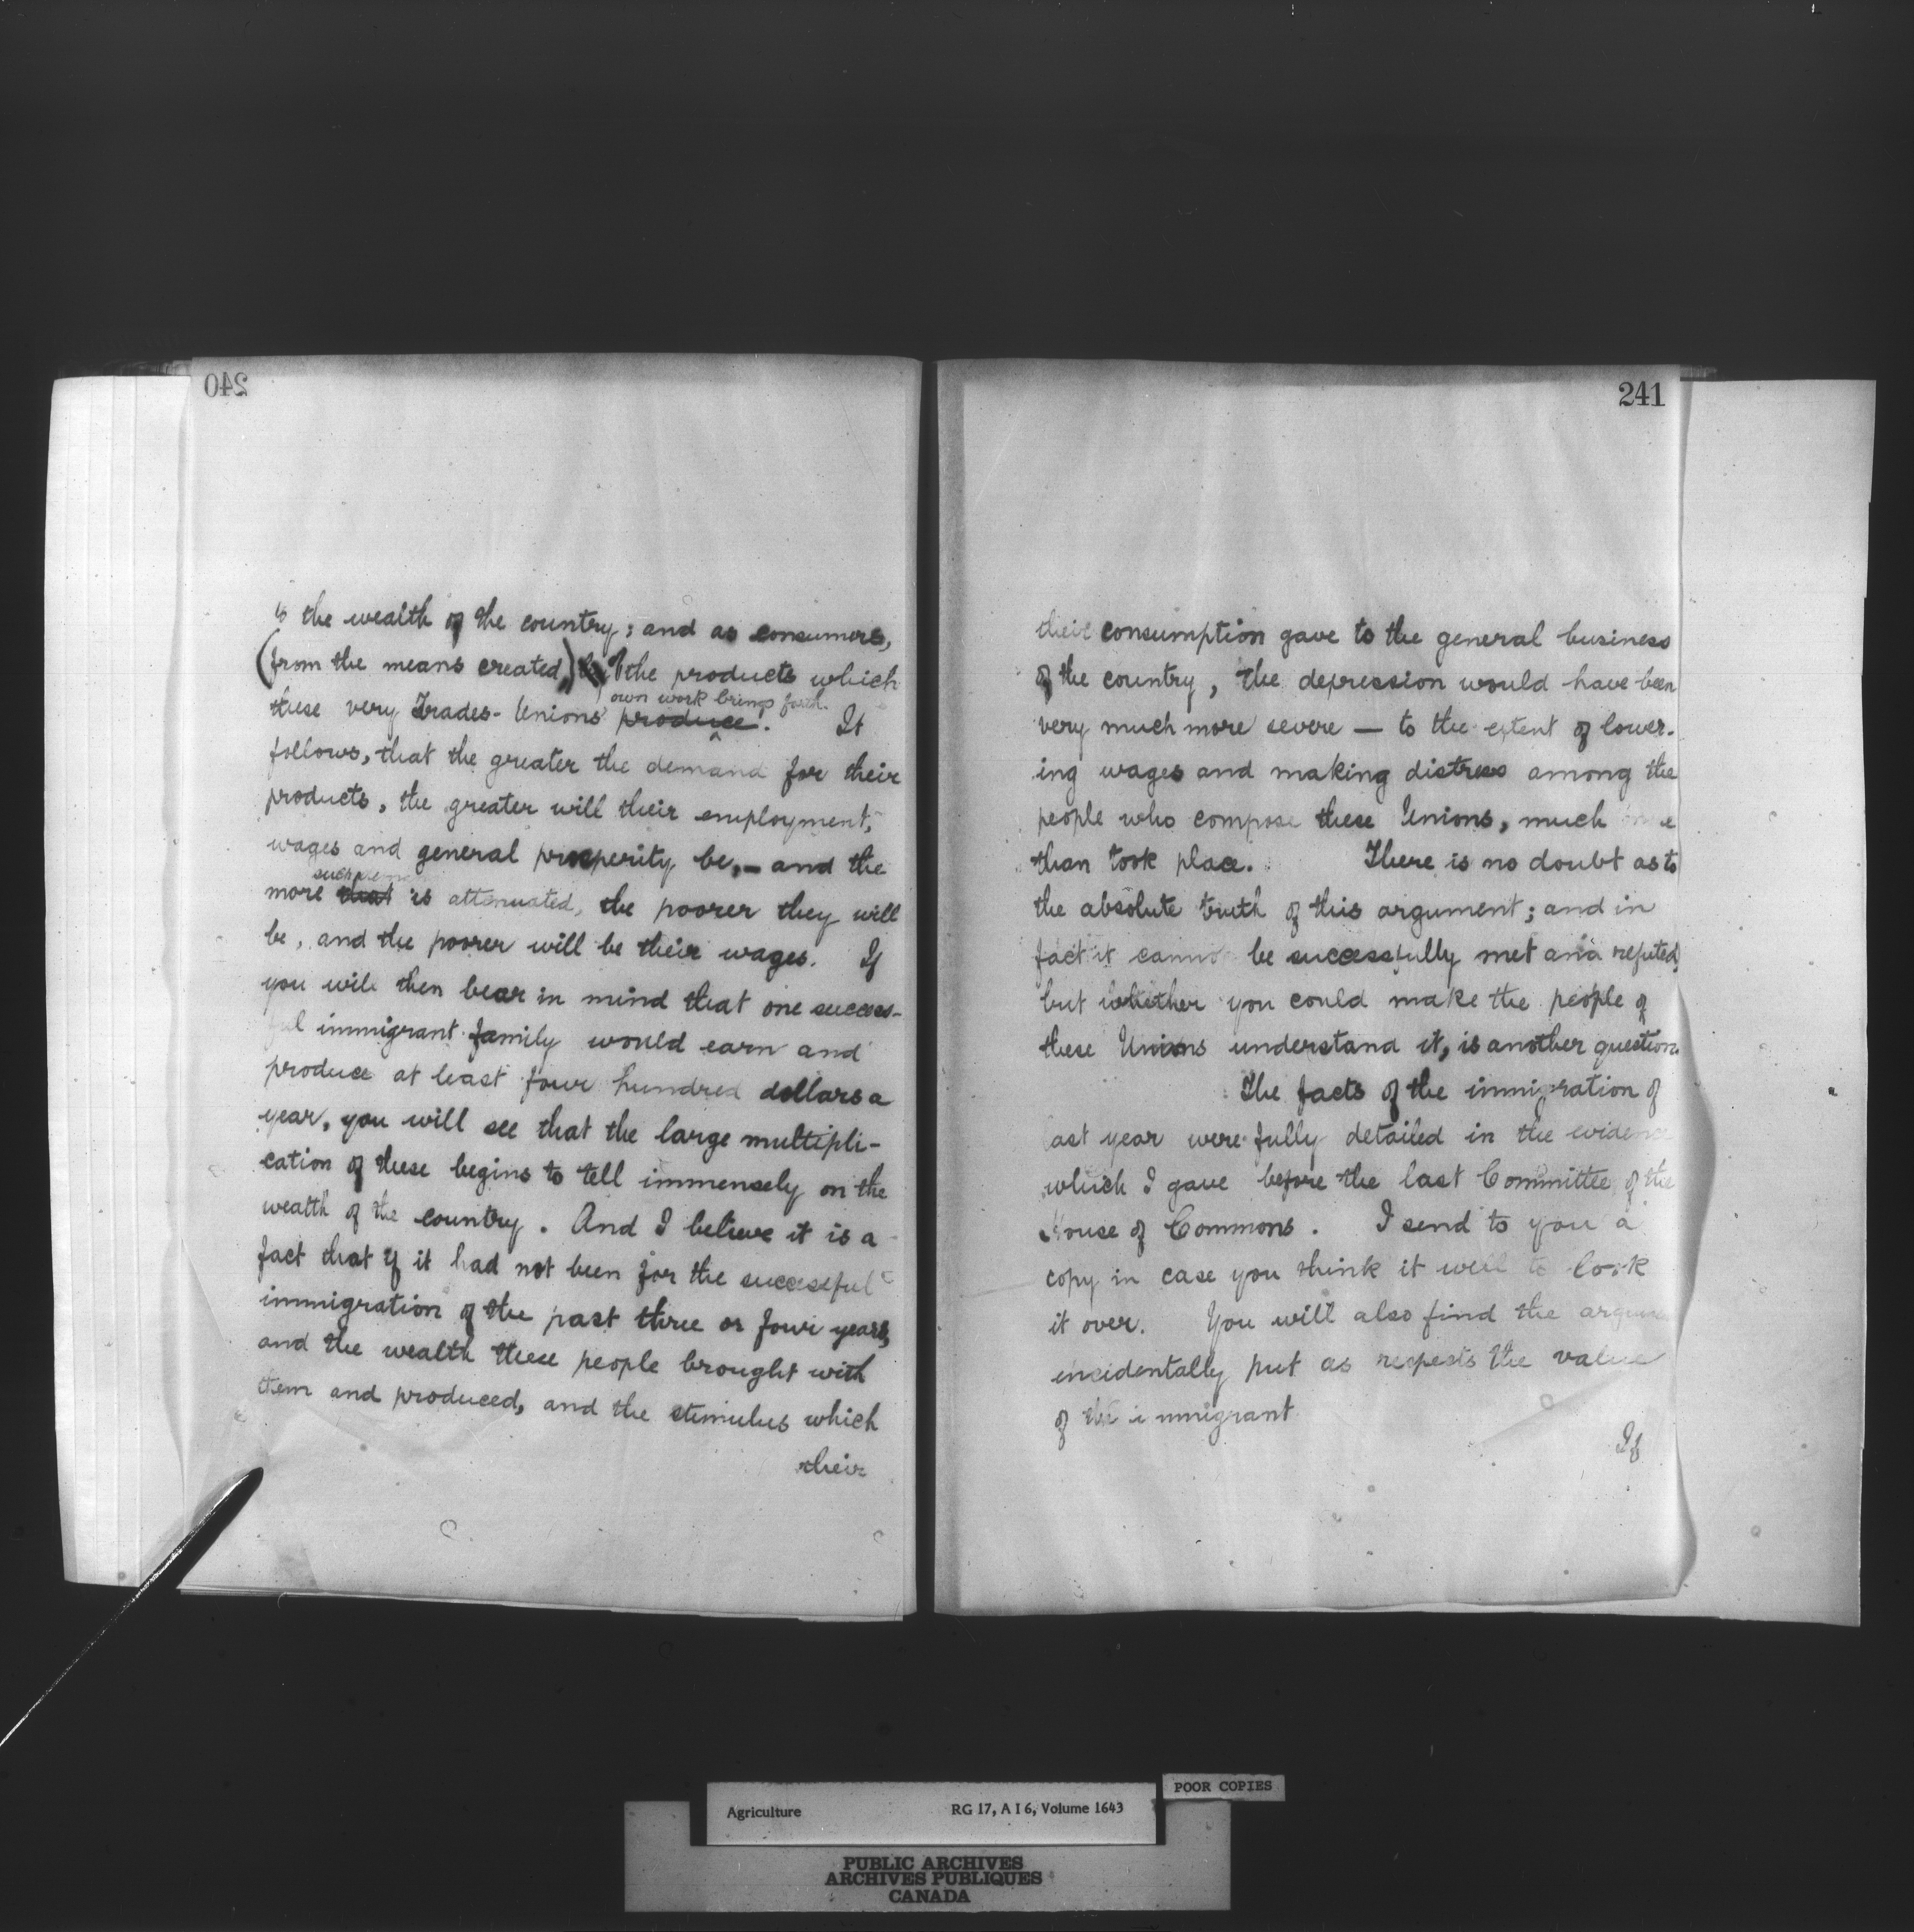 240
to the wealth of the country; and as consumers,
(from the means created,) of the products which
own work brings forth.
these very Trades-Unions' produce. It
follows, that the greater the demand for their
products, the greater will their employment,
wages and general prosperity be,— and the
such
more that is attenuated, the poorer they will
be, and the poorer will be their wages. If
you will then bear in mind that one success-
ful immigrant family would earn and
produce at least four hundred dollars a
year, you will see that the large multipli-
cation of these begins to tell immensely on the
wealth of the country. And I believe it is a
fact that if it had not been for the successful
immigration of the past three or four years,
and the wealth these people brought with
them and produced, and the stimulus which
their
241
their consumption gave to the general business
of the country, the depression would have been
very much more severe — to the extent of lower-
ing wages and making distress among the
people who compose these Unions, much more
than took place. There is no doubt as to
the absolute truth of this argument; and in
fact it cannot be successfully met and refuted,
but whether you could make the people of
these Unions understand it, is another question.
The facts of the immigration of
last year were fully detailed in the evidence
which I gave before the last Committee of the
House of Commons. I send to you a
copy in case you think it well to look
it over. You will also find the argument
incidentally put as respects the value
of the immigrant
If
POOR COPIES
Agriculture RG 17, A I 6, Volume 1643
PUBLIC ARCHIVES
ARCHIVES PUBLIQUES
CANADA